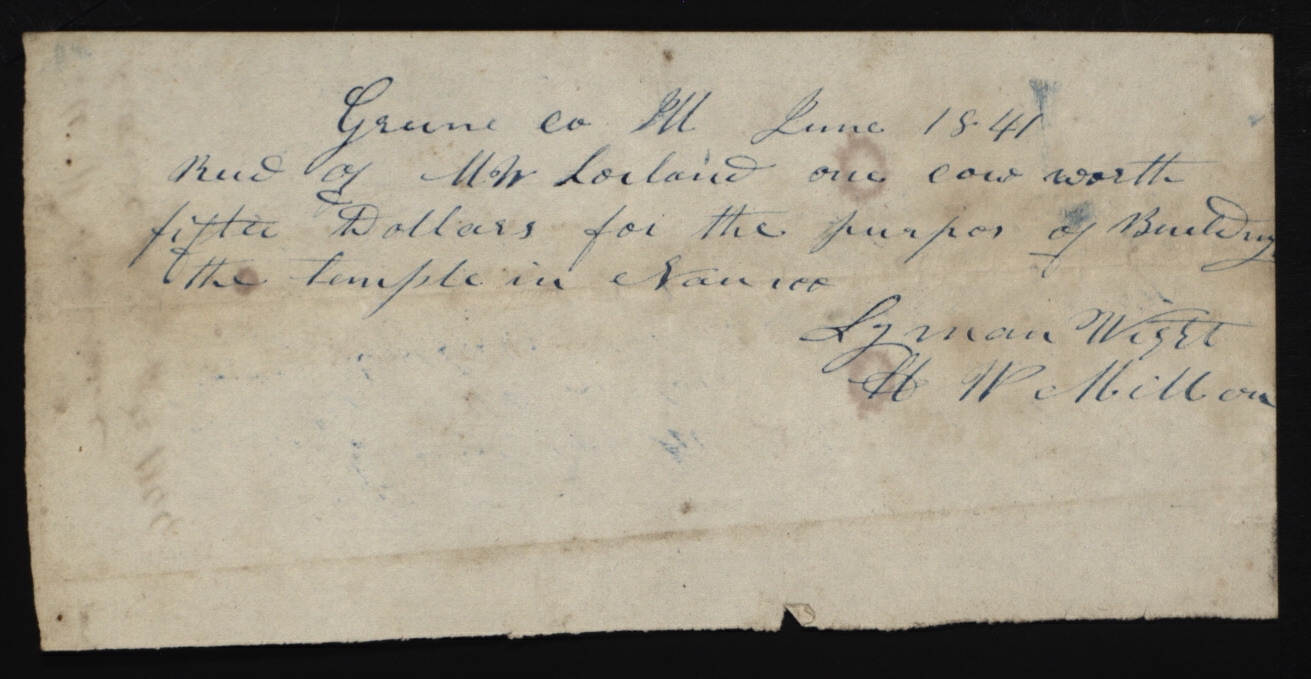 Greene co Ill June 1841
Recd of M W Lovland one cow worth
fiftee Dollars for the purpos of Building
the temple in Nauvoo
Lyman Wight
H W Millon